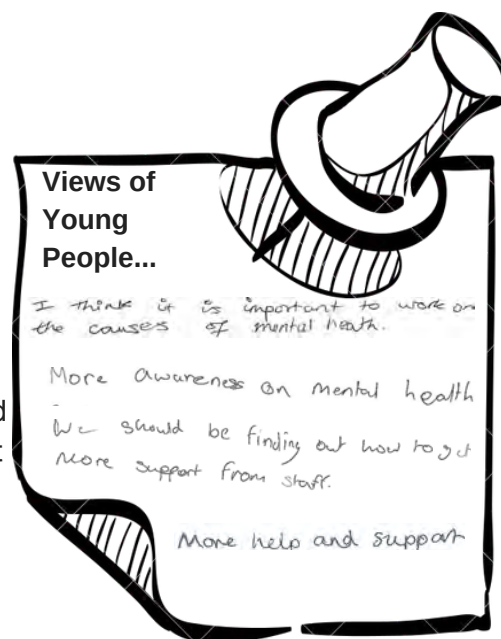 Views of
Young
People...
I think it is important to work on
the causes of mental heath.
More awareness on mental health
We should be finding out how to get
more support from staff.
More help and support